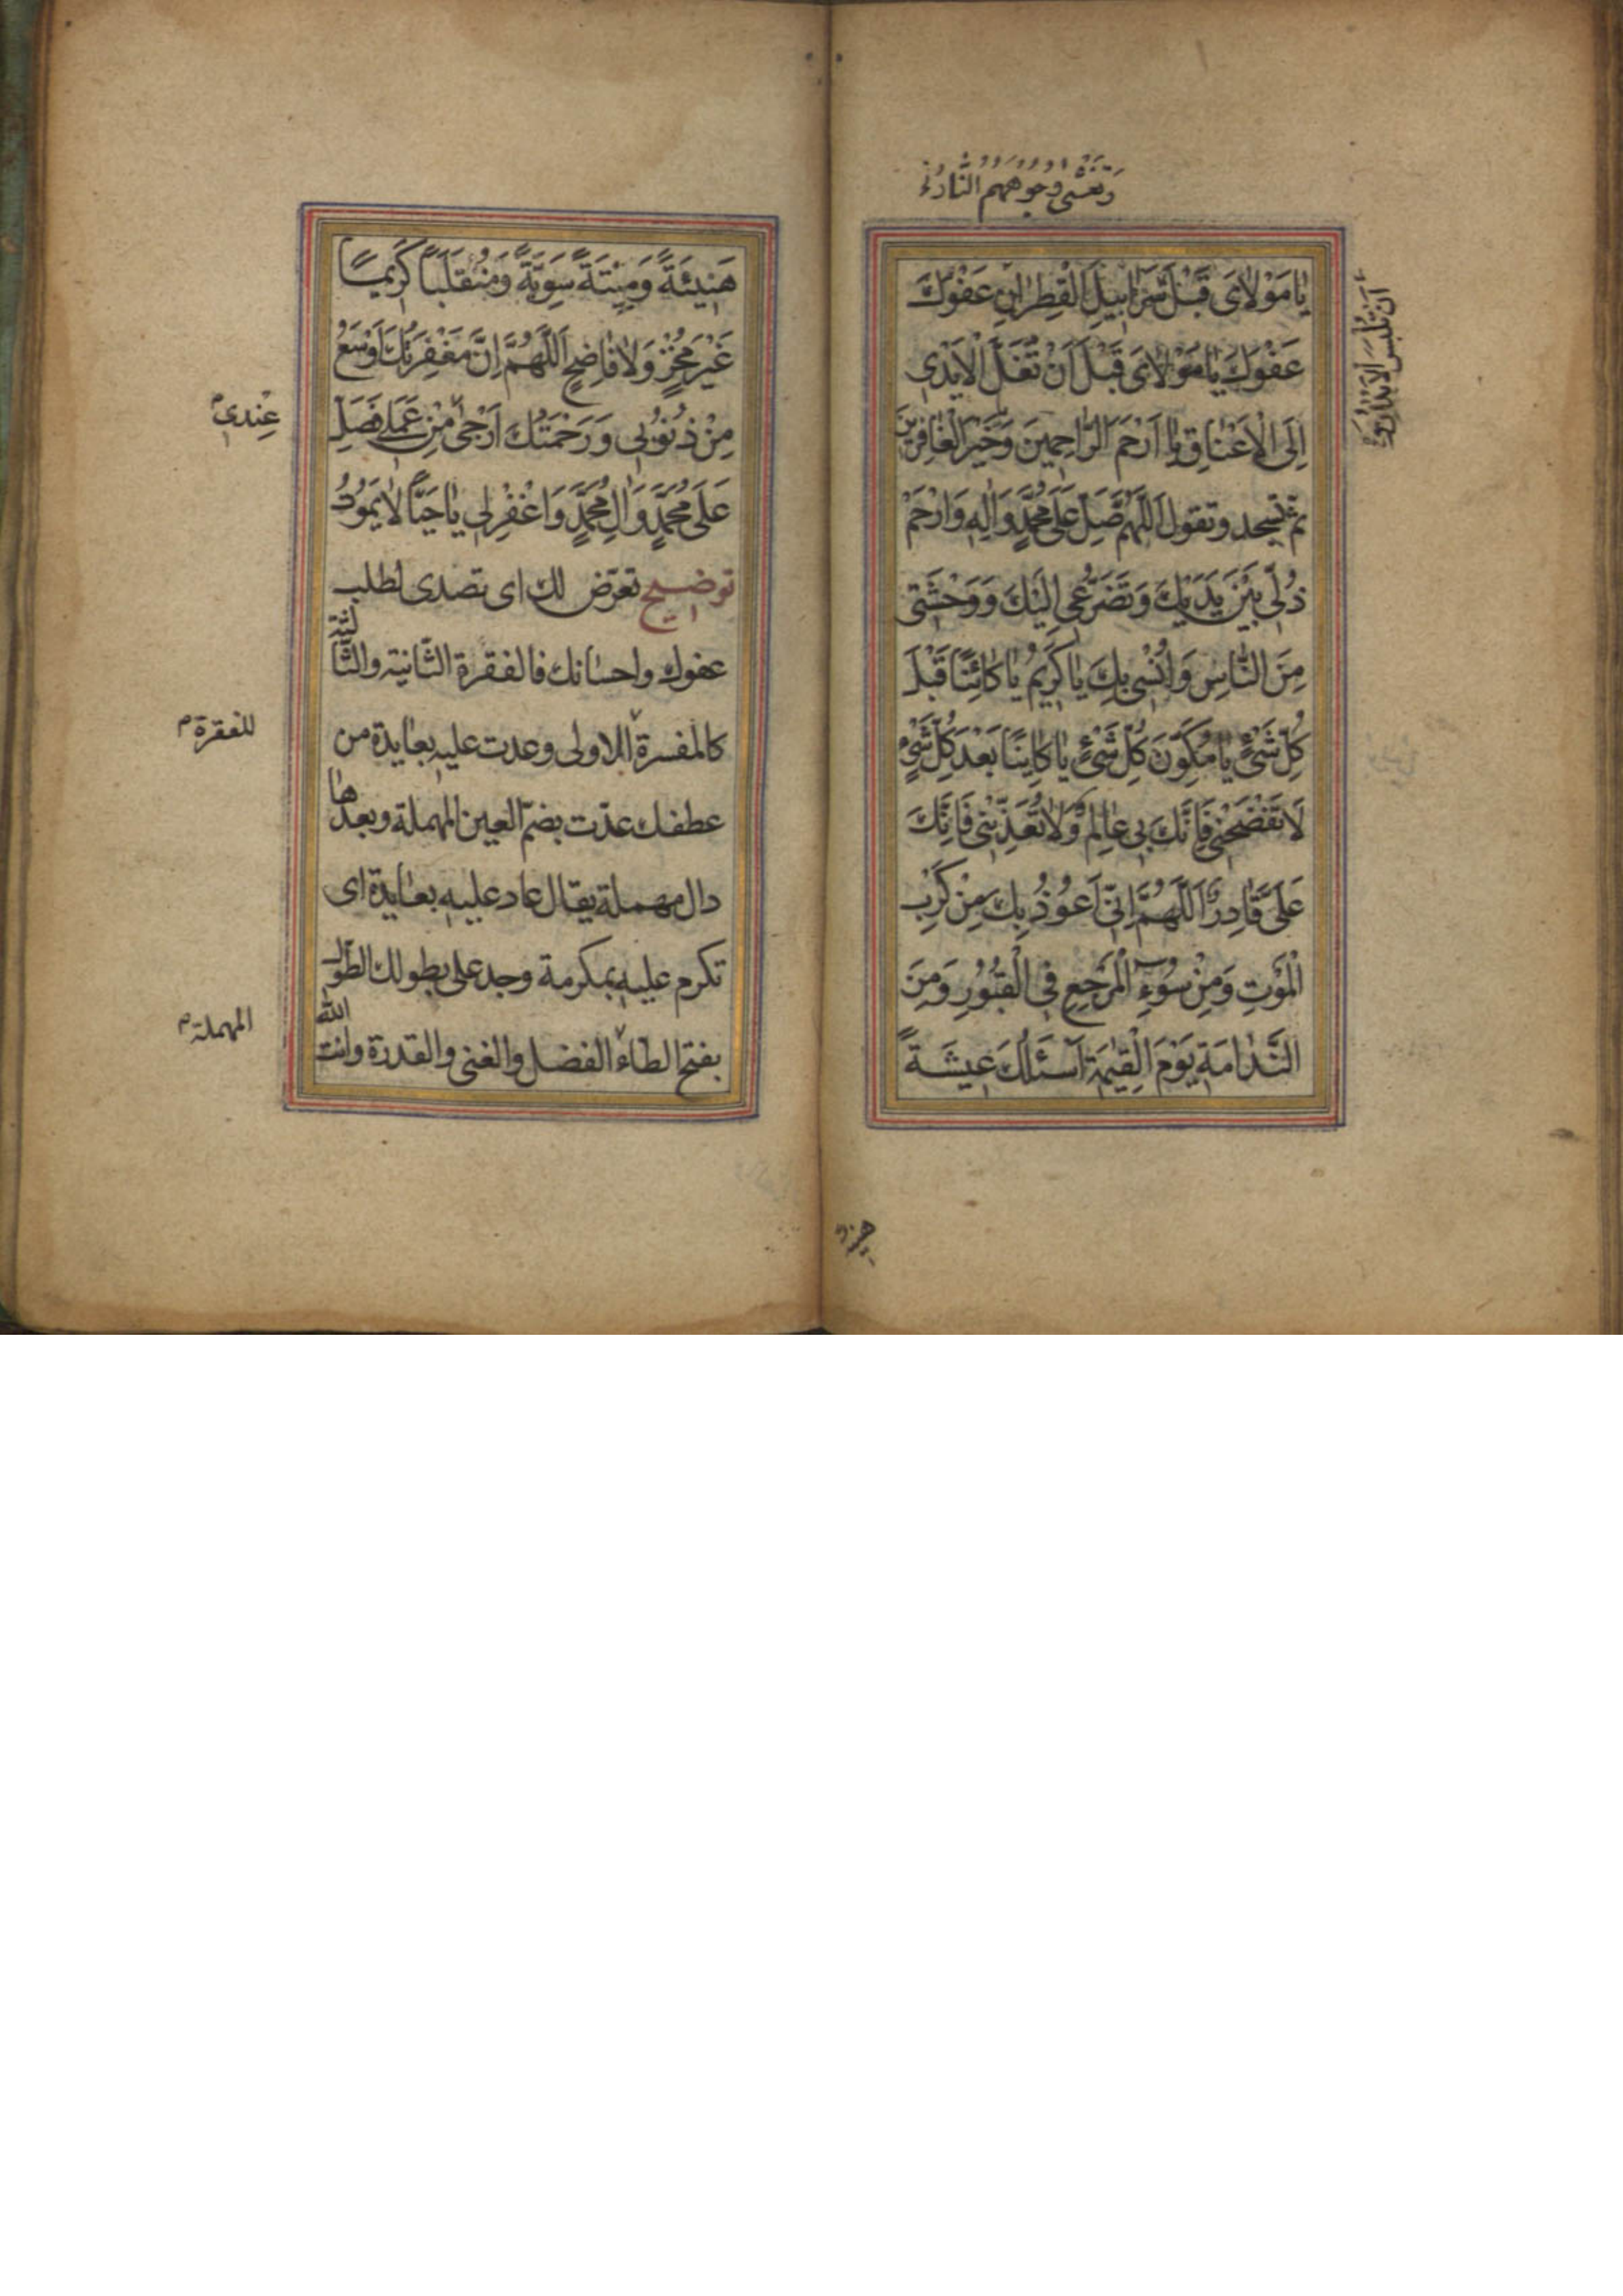 وَتَغْشَى وُجُوهَهُمُ النَّارُ
أَنْ تُلْبَسَ الْأَبْدَانُ
يٰا مَوْلاٰىَ قَبْلَ سَرٰابِيلِ الْقَطِرٰانِ عَفْوَكَ
عَفْوَكَ يٰا مَوْلاٰىَ قَبْلَ اَنْ تُغَلَّ الْاَيْدٖى
اِلَى الْاَعْنٰاقِ يٰا اَرْحَمَ الرّٰاحِمِينَ وَخَيْرَ الْغٰافِرِينَ
ثم تسجد وتقول اَللّٰهُمَّ صَلِّ عَلٰى مُحَمَّدٍ وَاٰلِهِ وَارْحَمْ
ذُلّٖى بَيْنَ يَدَيْكَ وَتَضَرُّعٖى اِلَيْكَ وَوَحْشَتٖى
مِنَ النّٰاسِ وَاُنْسٖى بِكَ يٰا كَرٖيمُ يٰا كٰائِنًا قَبْلَ
كُلِّ شَىْءٍ يٰا مُكَوِّنَ كُلِّ شَىْءٍ يٰا كٰايِنًا بَعْدَ كُلِّ شَىْءٍ
لاٰ تَفْضَحْنٖى فَاِنَّكَ بٖى عٰالِمٌ وَلاٰ تُعَذِّبْنٖى فَاِنَّكَ
عَلَىَّ قٰادِرٌ اَللّٰهُمَّ اِنّٖى اَعُوذُ بِكَ مِنْ كَرْبِ
الْمَوْتِ وَمِنْ سُوٓءِ الْمَرْجِعِ فِى الْقُبُورِ وَمِنَ
النَّدٰامَةِ يَوْمَ الْقِيٰمَةِ اَسْئَلُكَ عٖيشَةً
هَنٖيئَةً وَمٖيتَةً سَوِيَّةً وَمُنْقَلَبًا كَرٖيمًا
غَيْرَ مُخْزٍ وَلاٰ فٰاضِحٍ اَللّٰهُمَّ اِنَّ مَغْفِرَتَكَ اَوْسَعُ
مِنْ ذُنُوبٖى وَرَحْمَتُكَ اَرْجٰى مِنْ عَمَلٖى فَصَلِّ
عِنْدٖى م
عَلٰى مُحَمَّدٍ وَاٰلِ مُحَمَّدٍ وَاغْفِرْ لٖى يٰا حَيًّا لاٰ يَمُوتُ
توضيح تعرّض لك اى تصدى لطلب
عفوك واحسانك فالفقرة الثانية والثالثة
كالمفسرة للاولى وعدت عليه بعايدة من
للفقرة م
عطفك عدت بضم العين المهملة وبعدها
دال مهملة يقال عاد عليه بعايدة اى
تكرم عليه بمكرمة وجد على بطولك الطول
بفتح الطاء الفضل والغنى والقدرة وانت الله
المهملة م